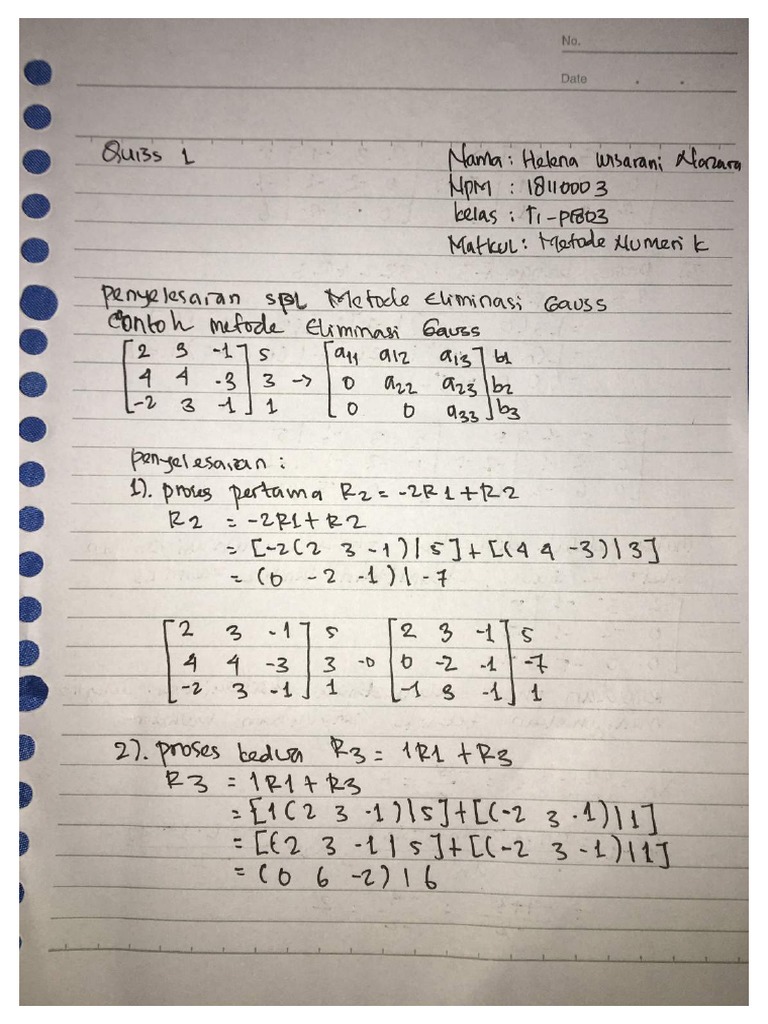 No.
Date
Quiss 1
Nama : Helena Wisarani
NPM : 18110003
kelas : TI-P1803
Matkul : Metode Numerik
Penyelesaian SPL Metode Eliminasi Gauss
Contoh metode Eliminasi Gauss
[2 3 -1] 5 [a11 a12 a13] b1
[4 4 -3] 3 -> [0 a22 a23] b2
[-2 3 -1] 1 [0 0 a33] b3
Penyelesaian :
1). Proses pertama R2 = -2R1 + R2
R2 = -2R1 + R2
= [-2(2 3 -1) | 5] + [(4 4 -3) | 3]
= (0 -2 -1) | -7
[2 3 -1] 5 [2 3 -1] 5
[4 4 -3] 3 -0 [0 -2 -1] -7
[-2 3 -1] 1 [-1 3 -1] 1
2). Proses kedua R3 = 1R1 + R3
R3 = 1R1 + R3
= [1(2 3 -1) | 5] + [(-2 3 -1) | 1]
= [(2 3 -1 | 5] + [(-2 3 -1) | 1]
= (0 6 -2) | 6